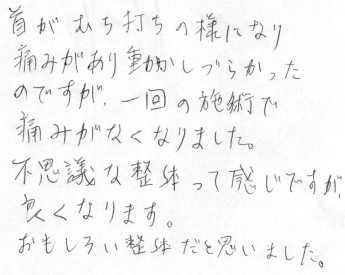 首がむち打ちの様になり
痛みがあり動かしづらかった
のですが、一回の施術で
痛みがなくなりました。
不思議な整体って感じですが、
良くなります。
おもしろい整体だと思いました。